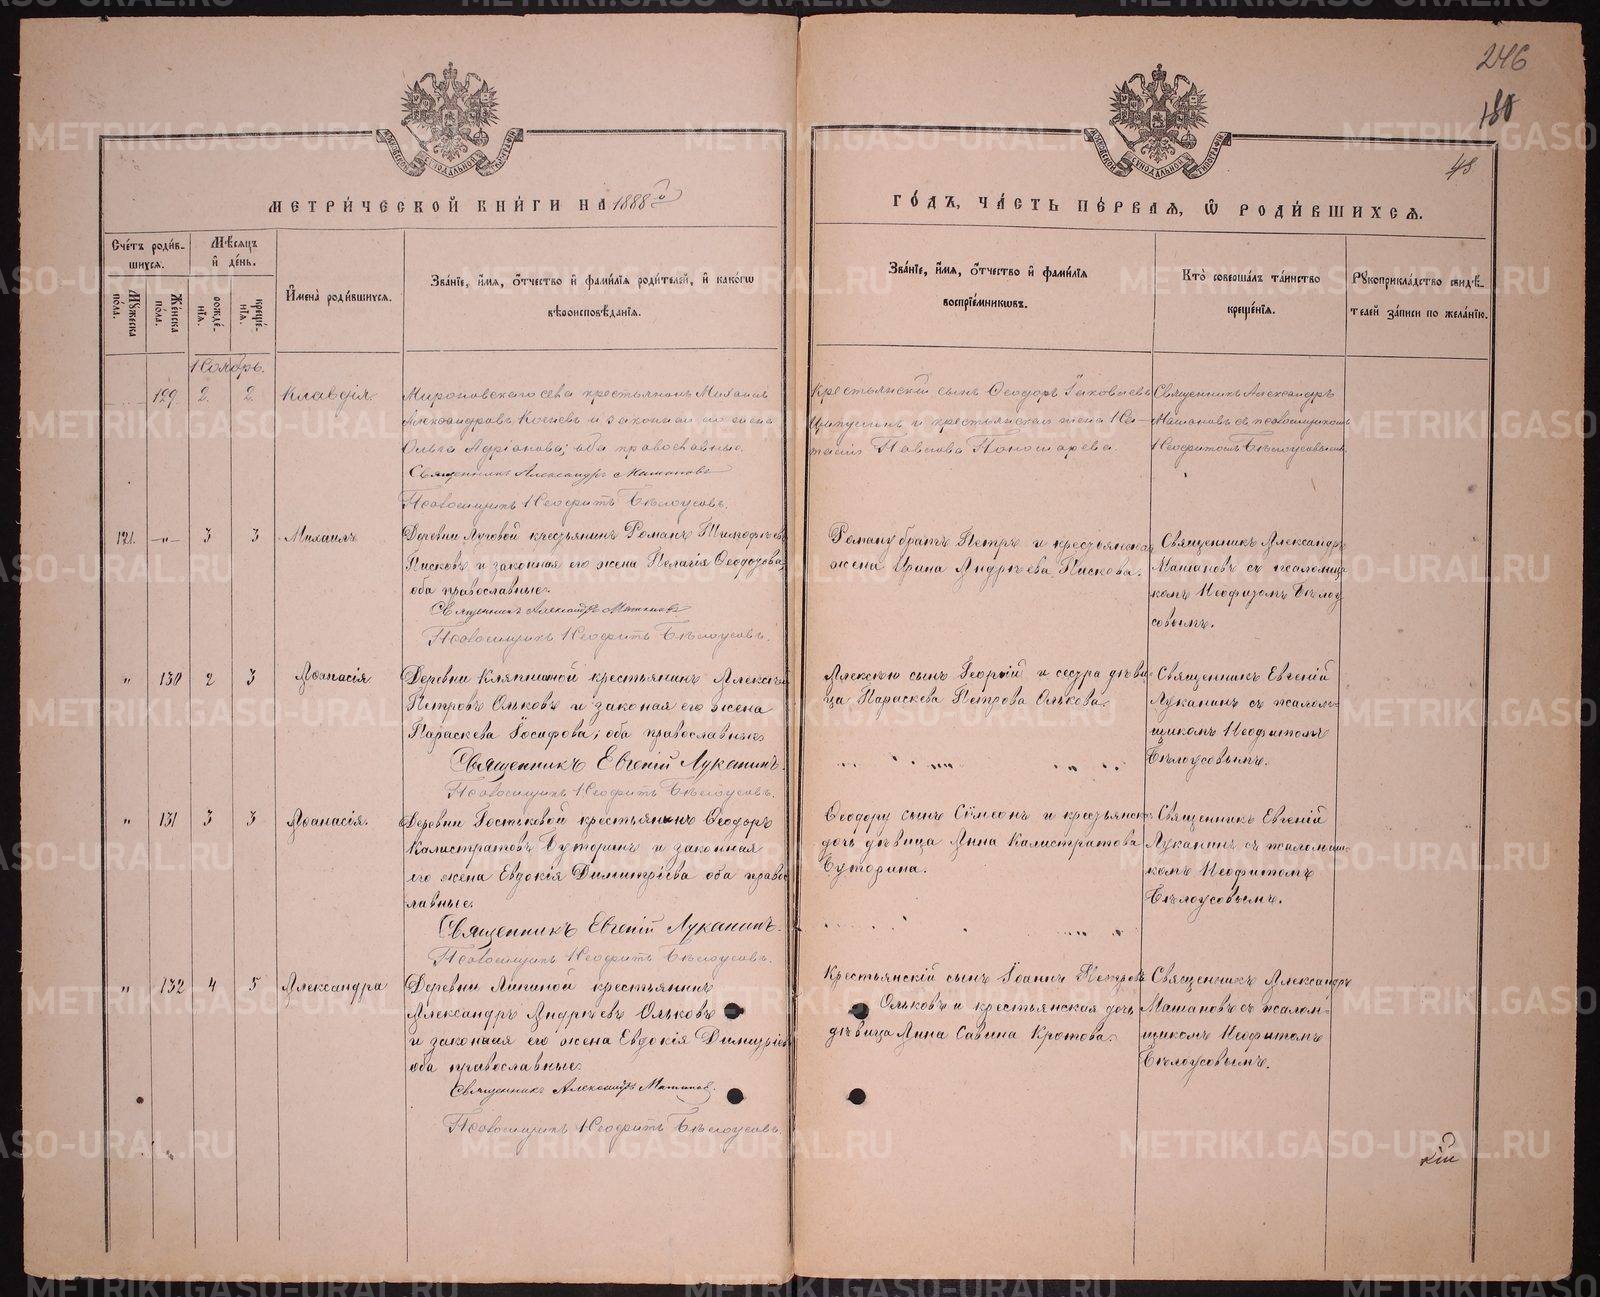 246
180
48
МЕТРИ́ЧЕСКОЙ КНИ́ГИ НА 1888й
ГО́ДЪ, ЧА́СТЬ ПЕ́РВАЯ, Ѡ҆ РОДИ́ВШИХСЯ.
Сче́тъ роди́в-
шихся.
Му́жеска по́ла.
Же́нска по́ла.
Мѣ́сяцъ
и҆ де́нь.
рожде́-
нїя.
креще́-
нїя.
И҆мена̀ роди́вшихся.
Зва́нїе, и҆́мя, о҆́тчество и҆ фами́лїя роди́телей, и҆ како́гѡ
вѣроисповѣ́данїя.
Зва́нїе, и҆́мя, о҆́тчество и҆ фами́лїя
воспрїе́мникѡвъ.
Кто̀ соверша́лъ та́инство
креще́нїя.
Рꙋкоприкла́дство свидѣ́-
телей за́писи по жела́нїю.
Ноябрь.
129 2. 2 Клавдія.
Мироновскаго села крестьянинъ Михаилъ
Александровъ Кочневъ и законная его жена
Ольга Адріанова; оба православные.
Священникъ Александръ Матановъ
Псаломщикъ Неофитъ Бѣлоусовъ.
Крестьянскій сынъ Ѳеодоръ Іаковлевъ
и крестьянская жена
Павлова Пономарева
Священникъ Александръ
Матановъ съ псаломщикомъ
Неофитомъ Бѣлоусовымъ.
121. -"- 3 3 Михаилъ
Деревни Луговой крестьянинъ Романъ Тимофѣевъ
Писковъ и законная его жена Пелагія Ѳеодотова,
оба православные.
Священникъ Александръ Матановъ
Псаломщикъ Неофитъ Бѣлоусовъ.
Роману братъ Петръ и крестьянская
жена Ирина Андрѣева Пискова.
Священникъ Александръ
Матановъ съ псаломщи-
комъ Неофитомъ Бѣлоу
совымъ.
" 130 2 3 Аѳанасія
Деревни Кляпиной крестьянинъ Алексѣй
Петровъ Ольковъ и законая его жена
Параскева Іосифова; оба православные
Священникъ Евгеній Луканинъ.
Псаломщикъ Неофитъ Бѣлоусовъ.
Алексѣю сынъ Георгій и сестра дѣви
ца Параскева Петрова Олькова.
Священникъ Евгеній
Луканинъ съ псалом-
щикомъ Неофитомъ
Бѣлоусовымъ.
" 131 3 3 Аѳанасія.
Деревни Гостьковой крестьянинъ Ѳеодоръ
Калистратовъ Буторинъ и законная
его жена Евдокія Димитріева оба право
славные.
Священникъ Евгеній Луканинъ.
Псаломщикъ Неофитъ Бѣлоусовъ.
Ѳеодору сынъ Сімеонъ и крестьянск
дочь дѣвица Анна Калистратова
Буторина.
Священникъ Евгеній
Луканинъ съ псаломщи-
комъ Неофитомъ
Бѣлоусовымъ.
" 132 4 5 Александра
Деревни Липиной крестьянинъ
Александръ Андрѣевъ Ольковъ
и законная его жена Евдокія Димитріев
оба православные.
Священникъ Александръ Матановъ.
Псаломщикъ Неофитъ Бѣлоусовъ.
Крестьянскій сынъ Іоаннъ Петровъ
Ольковъ и крестьянская дочь
дѣвица Анна Савина Кротова.
Священникъ Александръ
Матановъ съ псалом-
щикомъ Неофитомъ
Бѣлоусовымъ.
METRIKI.GASO-URAL.RU